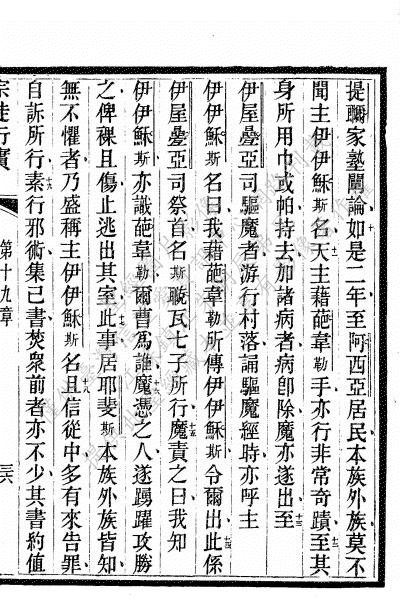 提聽家塾闡論如是二年至阿西亞居民本族外族莫不
聞主伊伊穌斯名天主藉葩韋勒手亦行非常奇蹟至其
身所用巾或帕持去加諸病者病卽除魔亦遂出至
伊屋疊亞司驅魔者游行村落誦驅魔經時亦呼主
伊伊穌斯名曰我藉葩韋勒所傳伊伊穌斯令爾出此係
伊屋疊亞司祭首名斯睃瓦七子所行魔責之曰我知
伊伊穌斯亦識葩韋勒爾曹爲誰魔憑之人遂踴躍攻勝
之俾裸且傷止逃出其室此事居耶斐斯本族外族皆知
無不懼者乃盛稱主伊伊穌斯名且信從中多有來告罪
自訴所行素行邪術集己書焚衆前者亦不少其書約値
宗徒行實
第十九章